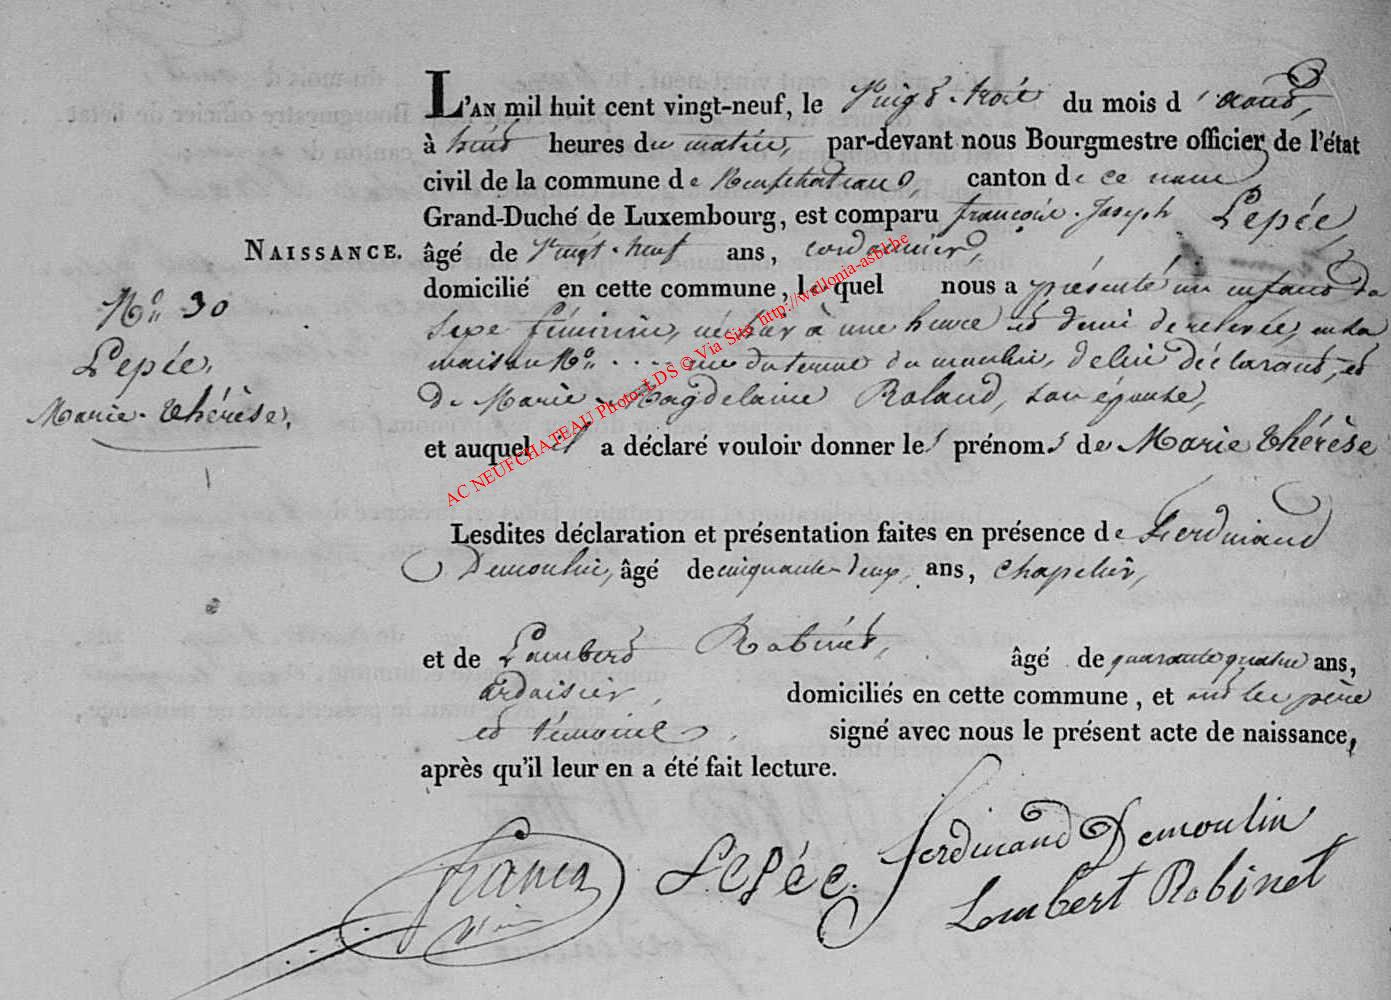 L'AN mil huit cent vingt-neuf, le Vingt-trois du mois d'Aout,
à neuf heures du matin, par-devant nous Bourgmestre officier de l'état
civil de la commune de Neufchateau, canton de ce nom,
Grand-Duché de Luxembourg, est comparu françois-Joseph Lepée,
NAISSANCE. âgé de Vingt-neuf ans, cordonnier,
domicilié en cette commune, lequel nous a présenté un enfant du
sexe féminin, né hier à une heure et demi de relevée, en sa
maison No. ... rue du du moulin, de lui déclarant, et
de Marie-Magdelaine Roland, son épouse,
et auquel il a déclaré vouloir donner les prénoms de Marie Thérèse
No. 30
Lepée,
Marie-Thérèse,
Lesdites déclaration et présentation faites en présence de Ferdinand
Demoulin, âgé de cinquante-deux, ans, Chapelier,
et de Lambert Robinet, âgé de quarante quatre ans,
ardoisier, domiciliés en cette commune, et ont les père
et témoins signé avec nous le présent acte de naissance,
après qu'il leur en a été fait lecture.
Lepée. ferdinand Demoulin
Lambert Robinet
AC NEUFCHATEAU Photo LDS © Via Site http://wallonia-asbl.be